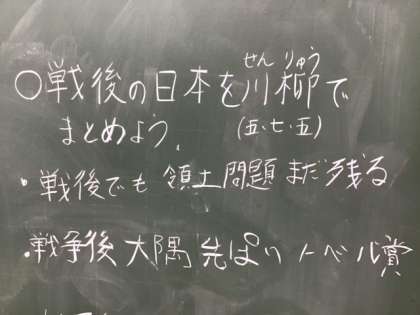 せんりゅう
○戦後の日本を川柳で
まとめよう。(五・七・五)
・戦後でも 領土問題 まだ残る
・戦争後 大隅先ぱい ノーベル賞